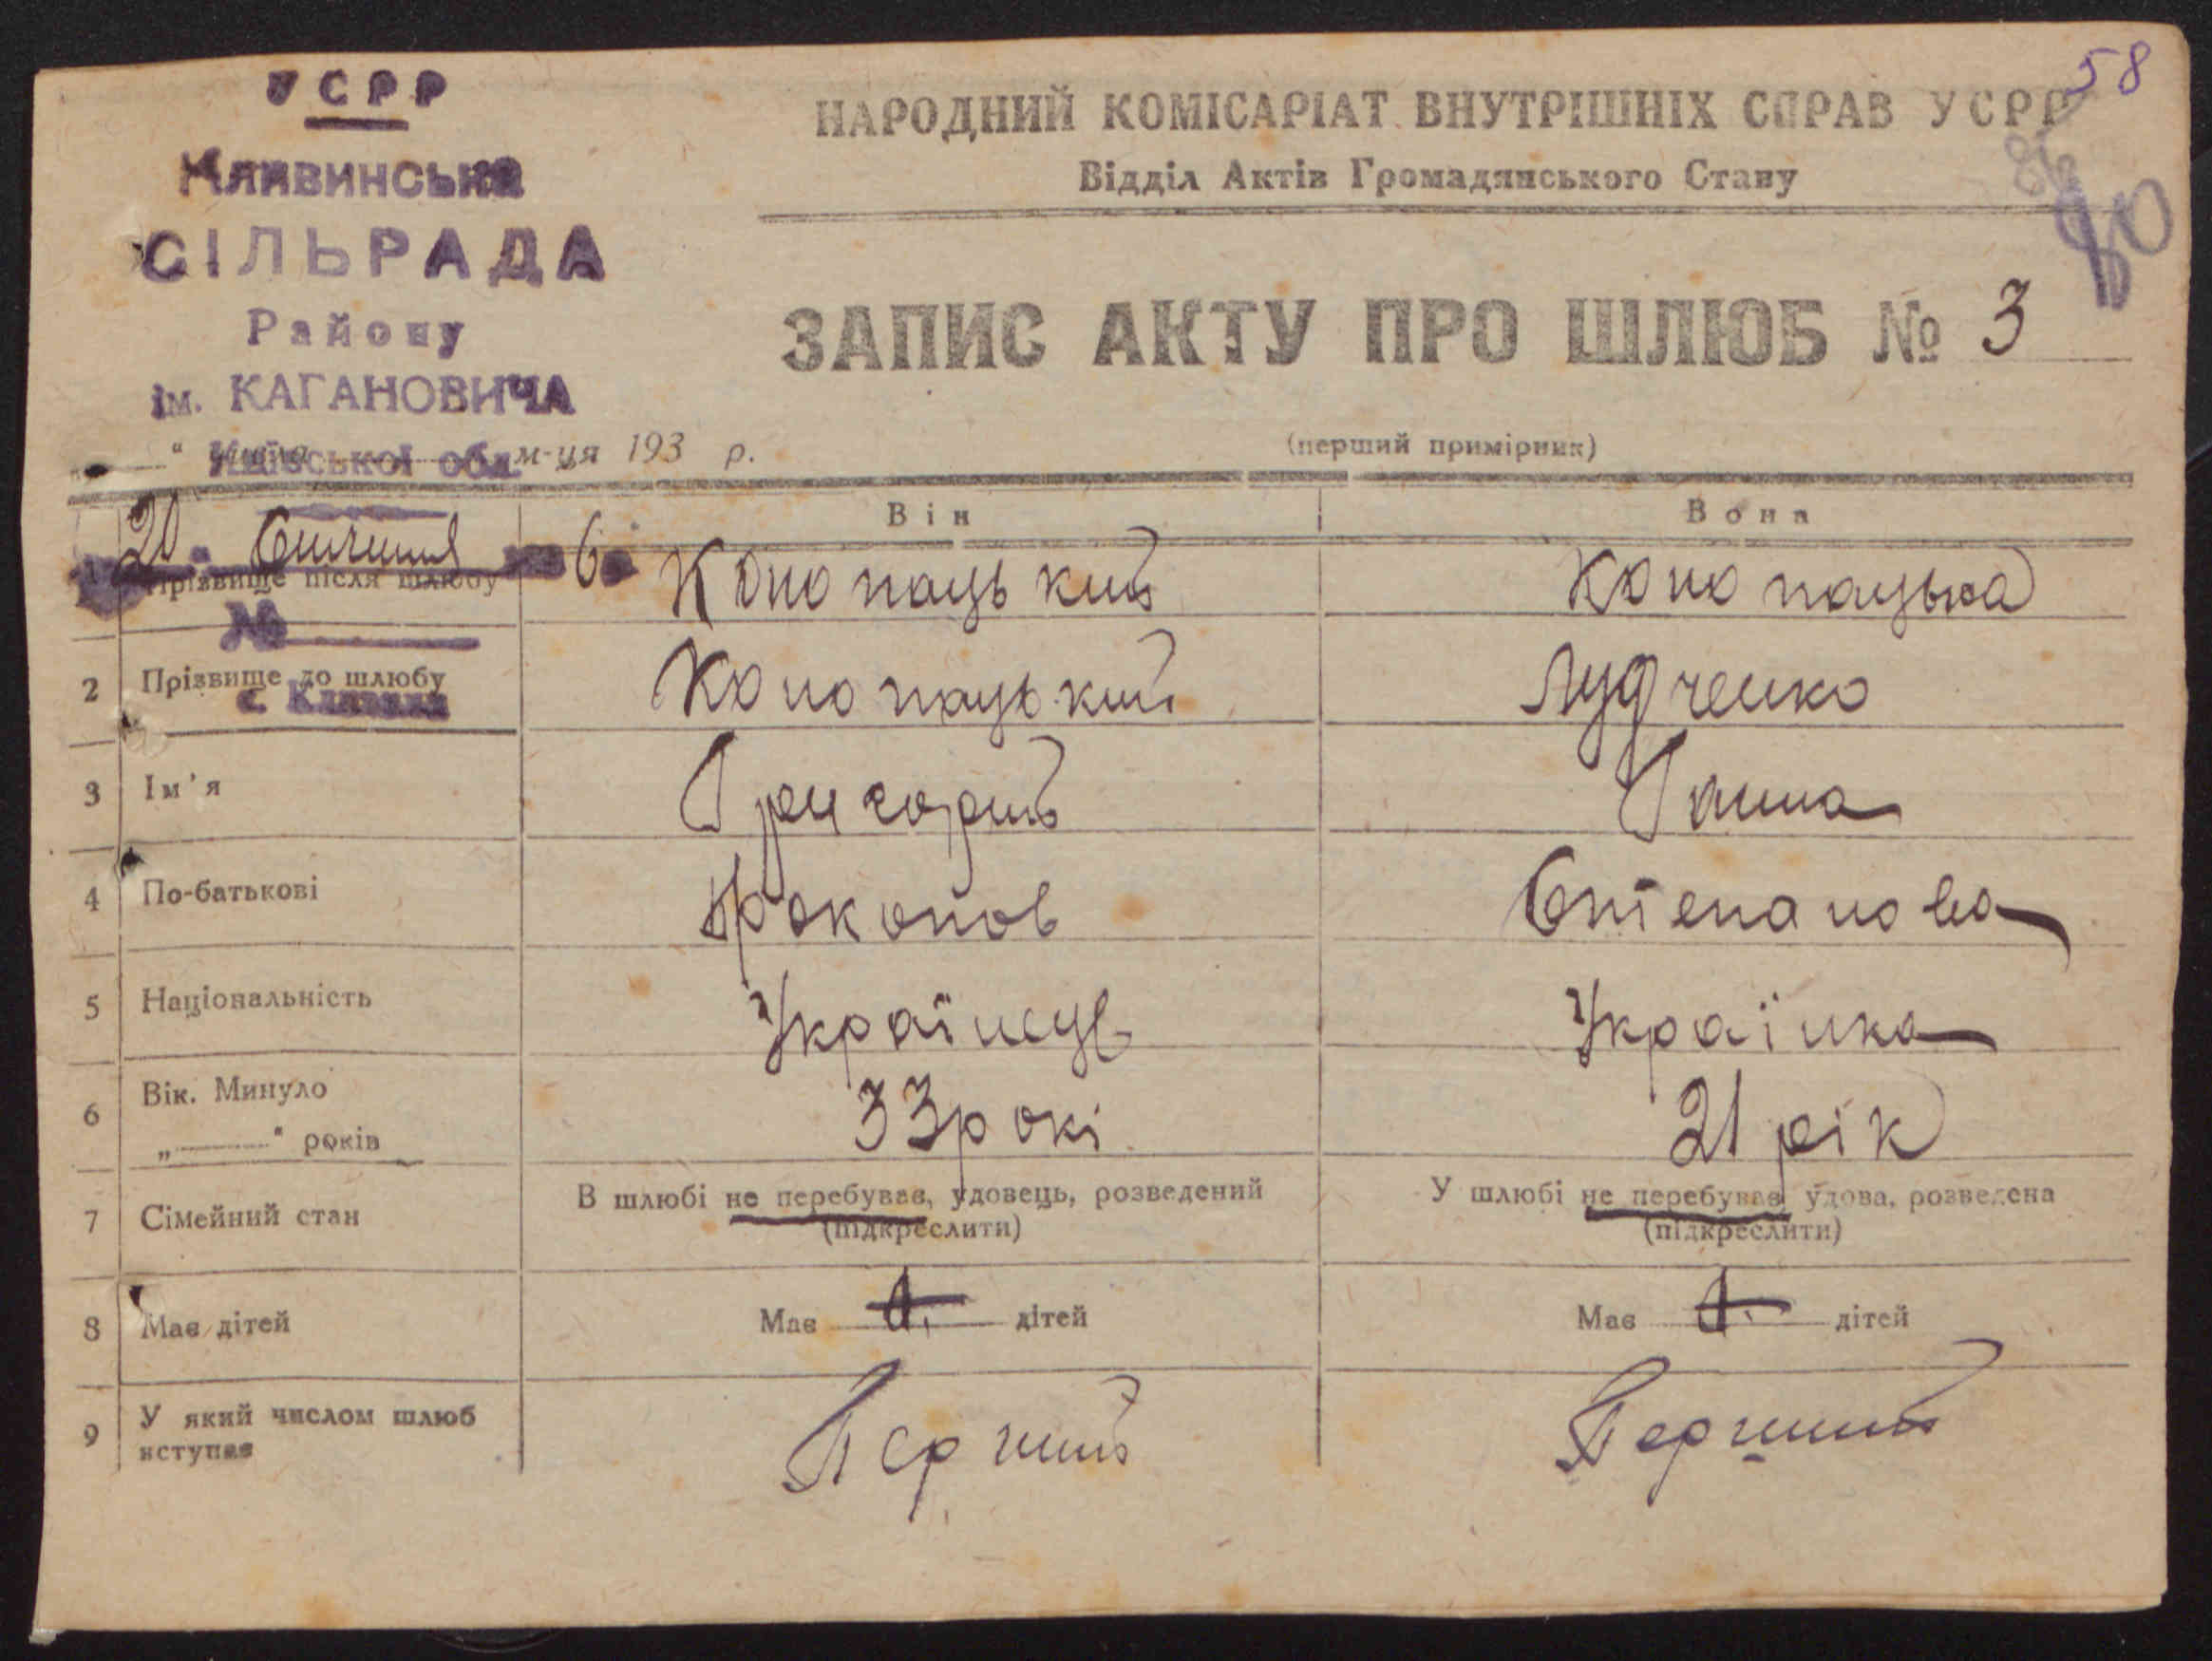 58
УСРР
НАРОДНИЙ КОМІСАРІАТ ВНУТРІШНІХ СПРАВ УСРР
Відділ Актів Громадянського Стану
80
Кливинська
СІЛЬРАДА
Району
ім. КАГАНОВИЧА
Київської обл.
ЗАПИС АКТУ ПРО ШЛЮБ № 3
" м-ця 193 р.
(перший примірник)
20 Січния 6
№
с. Кливини
Він Вона
1 Прізвище після шлюбу Конопацький Конопацька
2 Прізвище до шлюбу Конопацький Лудченко
3 Ім'я Григорий Ганна
4 По-батькові Прокопов Степанова
5 Національність Українець Українка
6 Вік. Минуло
„ " років 33 рокі 21 рік
7 Сімейний стан В шлюбі не перебував, удовець, розведений У шлюбі не перебував, удова, розведена
(підкреслити) (підкреслити)
8 Має дітей Має дітей Має дітей
9 У який числом шлюб
вступає Перший Перший